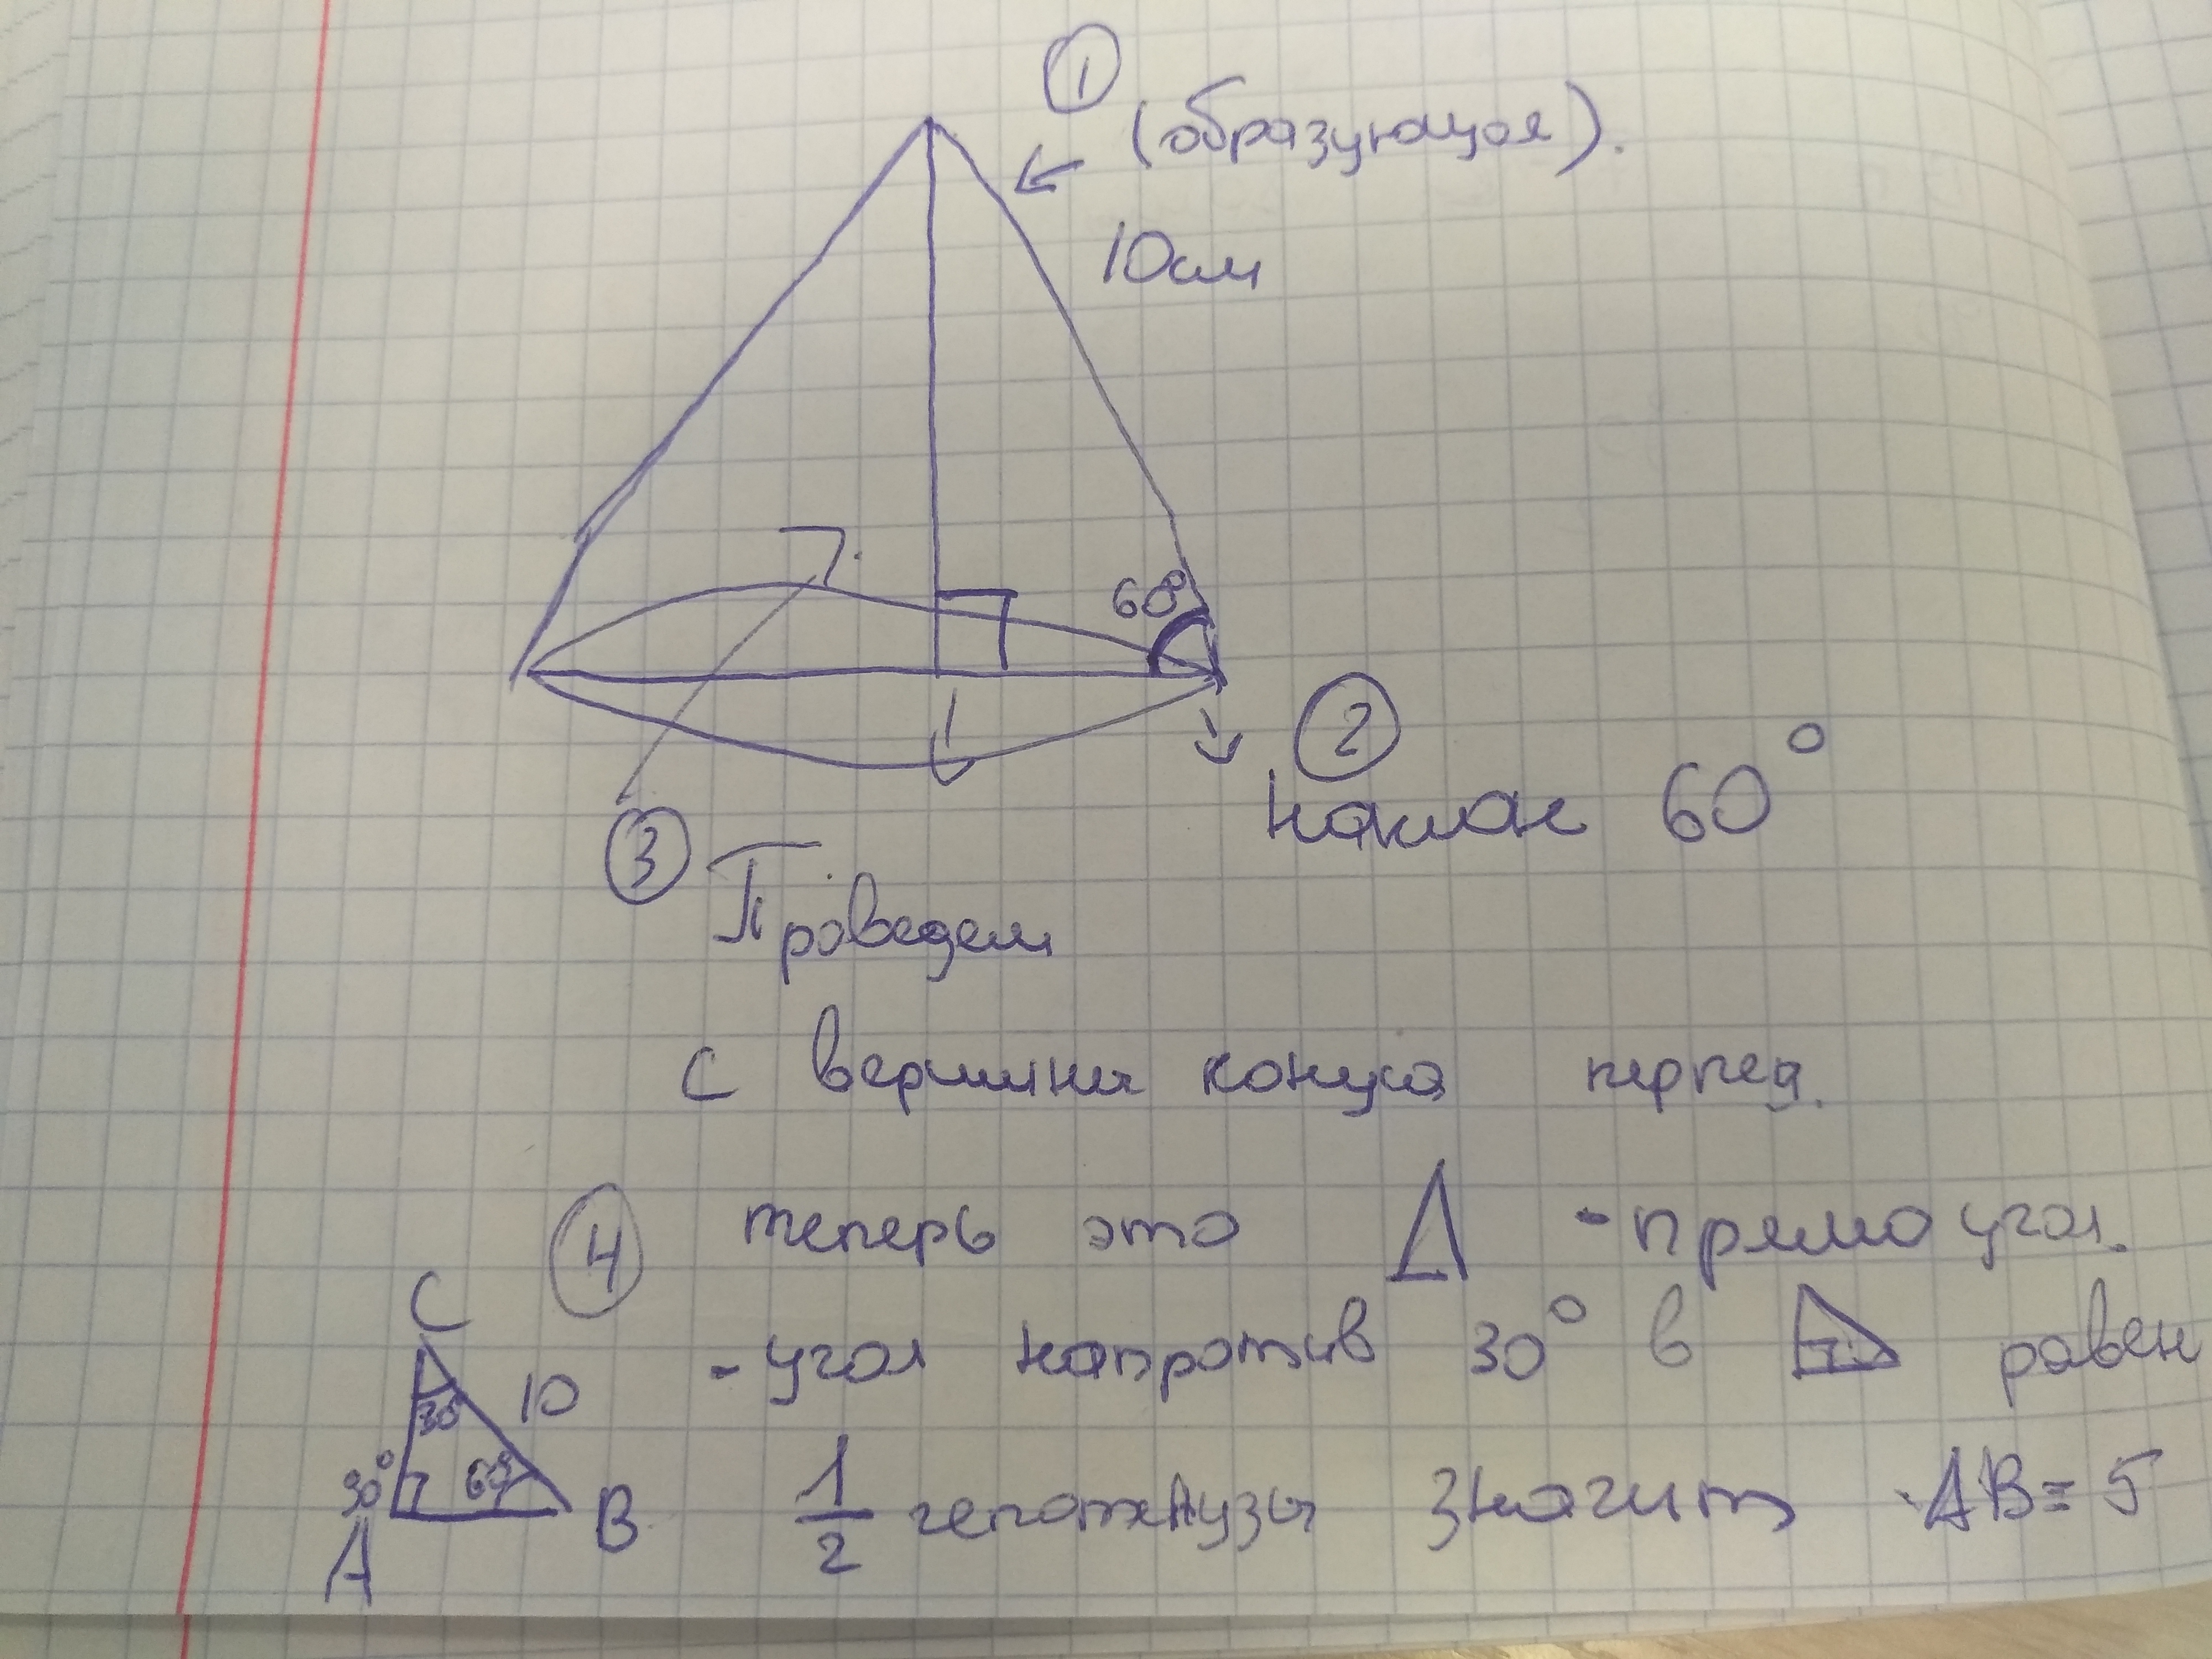 ① (образующая).
10см
60°
② наклон 60°
③ Проведем
с вершины конуса перпед.
④ теперь это Δ - прямоугол.
C
- угол напротив 30° в равен
10
30
90° 60°
1/2 гепотенузы значит AB = 5
A B